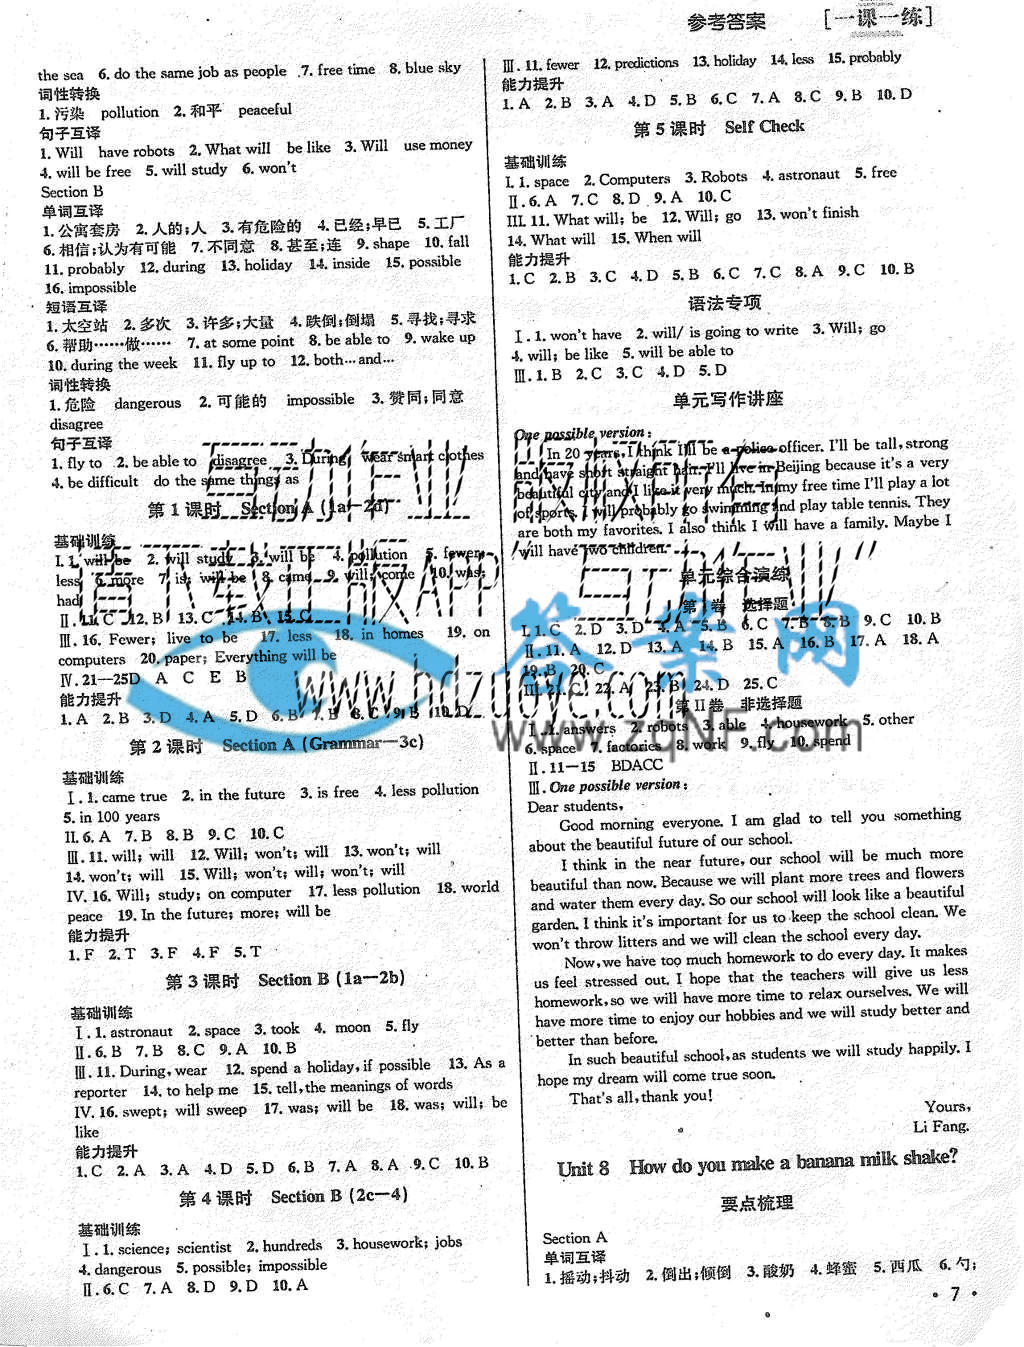 参考答案 [一课一练]
the sea 6. do the same job as people 7. free time 8. blue sky
词性转换
1. 污染 pollution 2. 和平 peaceful
句子互译
1. Will have robots 2. What will be like 3. Will use money
4. will be free 5. will study 6. won't
Section B
单词互译
1. 公寓套房 2. 人的;人 3. 有危险的 4. 已经;早已 5. 工厂
6. 相信;认为有可能 7. 不同意 8. 甚至;连 9. shape 10. fall
11. probably 12. during 13. holiday 14. inside 15. possible
16. impossible
短语互译
1. 太空站 2. 多次 3. 许多;大量 4. 跌倒;倒塌 5. 寻找;寻求
6. 帮助……做…… 7. at some point 8. be able to 9. wake up
10. during the week 11. fly up to 12. both…and…
词性转换
1. 危险 dangerous 2. 可能的 impossible 3. 赞同;同意
disagree
句子互译
1. fly to 2. be able to disagree 3. During wear smart clothes
4. be difficult do the same things as
第 1 课时 Section A (1a—2d)
基础训练
Ⅰ. 1. will be 2. will study 3. will be 4. pollution 5. fewer;
less 6. more 7. is; will be 8. came 9. will; come 10. was;
had
Ⅱ. 11. C 12. B 13. C 14. B 15. C
Ⅲ. 16. Fewer; live to be 17. less 18. in homes 19. on
computers 20. paper; Everything will be
Ⅳ. 21—25D A C E B
能力提升
1. A 2. B 3. D 4. A 5. D 6. B 7. B 8. C 9. B 10. D
第 2 课时 Section A (Grammar—3c)
基础训练
Ⅰ. 1. came true 2. in the future 3. is free 4. less pollution
5. in 100 years
Ⅱ. 6. A 7. B 8. B 9. C 10. C
Ⅲ. 11. will; will 12. Will; won't; will 13. won't; will
14. won't; will 15. Will; won't; will; won't; will
Ⅳ. 16. Will; study; on computer 17. less pollution 18. world
peace 19. In the future; more; will be
能力提升
1. F 2. T 3. F 4. F 5. T
第 3 课时 Section B (1a—2b)
基础训练
Ⅰ. 1. astronaut 2. space 3. took 4. moon 5. fly
Ⅱ. 6. B 7. B 8. C 9. A 10. B
Ⅲ. 11. During, wear 12. spend a holiday, if possible 13. As a
reporter 14. to help me 15. tell, the meanings of words
Ⅳ. 16. swept; will sweep 17. was; will be 18. was; will; be
like
能力提升
1. C 2. A 3. A 4. D 5. D 6. B 7. A 8. A 9. C 10. B
第 4 课时 Section B (2c—4)
基础训练
Ⅰ. 1. science; scientist 2. hundreds 3. housework; jobs
4. dangerous 5. possible; impossible
Ⅱ. 6. C 7. A 8. D 9. D 10. A
Ⅲ. 11. fewer 12. predictions 13. holiday 14. less 15. probably
能力提升
1. A 2. B 3. A 4. D 5. B 6. C 7. A 8. C 9. B 10. D
第 5 课时 Self Check
基础训练
Ⅰ. 1. space 2. Computers 3. Robots 4. astronaut 5. free
Ⅱ. 6. A 7. C 8. D 9. A 10. C
Ⅲ. 11. What will; be 12. Will; go 13. won't finish
14. What will 15. When will
能力提升
1. C 2. B 3. C 4. D 5. B 6. C 7. C 8. A 9. C 10. B
语法专项
Ⅰ. 1. won't have 2. will/ is going to write 3. Will; go
4. will; be like 5. will be able to
Ⅲ. 1. B 2. C 3. C 4. D 5. D
单元写作讲座
One possible version:
In 20 years, I think I'll be a police officer. I'll be tall, strong
and have short straight hair. I'll live in Beijing because it's a very
beautiful city and I like it very much. In my free time I'll play a lot
of sports. I will probably go swimming and play table tennis. They
are both my favorites. I also think I will have a family. Maybe I
will have two children.
单元综合演练
第Ⅰ卷 选择题
Ⅰ. 1. C 2. D 3. D 4. A 5. B 6. C 7. B 8. B 9. C 10. B
Ⅱ. 11. A 12. D 13. A 14. B 15. A 16. B 17. A 18. A
19. B 20. C
Ⅲ. 21. C 22. A 23. B 24. D 25. C
第Ⅱ卷 非选择题
Ⅰ. 1. answers 2. robots 3. able 4. housework 5. other
6. space 7. factories 8. work 9. fly 10. spend
Ⅱ. 11—15 BDACC
Ⅲ. One possible version:
Dear students,
Good morning everyone. I am glad to tell you something
about the beautiful future of our school.
I think in the near future, our school will be much more
beautiful than now. Because we will plant more trees and flowers
and water them every day. So our school will look like a beautiful
garden. I think it's important for us to keep the school clean. We
won't throw litters and we will clean the school every day.
Now, we have too much homework to do every day. It makes
us feel stressed out. I hope that the teachers will give us less
homework, so we will have more time to relax ourselves. We will
have more time to enjoy our hobbies and we will study better and
better than before.
In such beautiful school, as students we will study happily. I
hope my dream will come true soon.
That's all, thank you!
Yours,
Li Fang.
Unit 8 How do you make a banana milk shake?
要点梳理
Section A
单词互译
1. 摇动;抖动 2. 倒出;倾倒 3. 酸奶 4. 蜂蜜 5. 西瓜 6. 勺;
· 7 ·
互动作业 版权所有
请下载正版APP "互动作业"
答案网
www.hdzuoye.com
www.zqnf.com